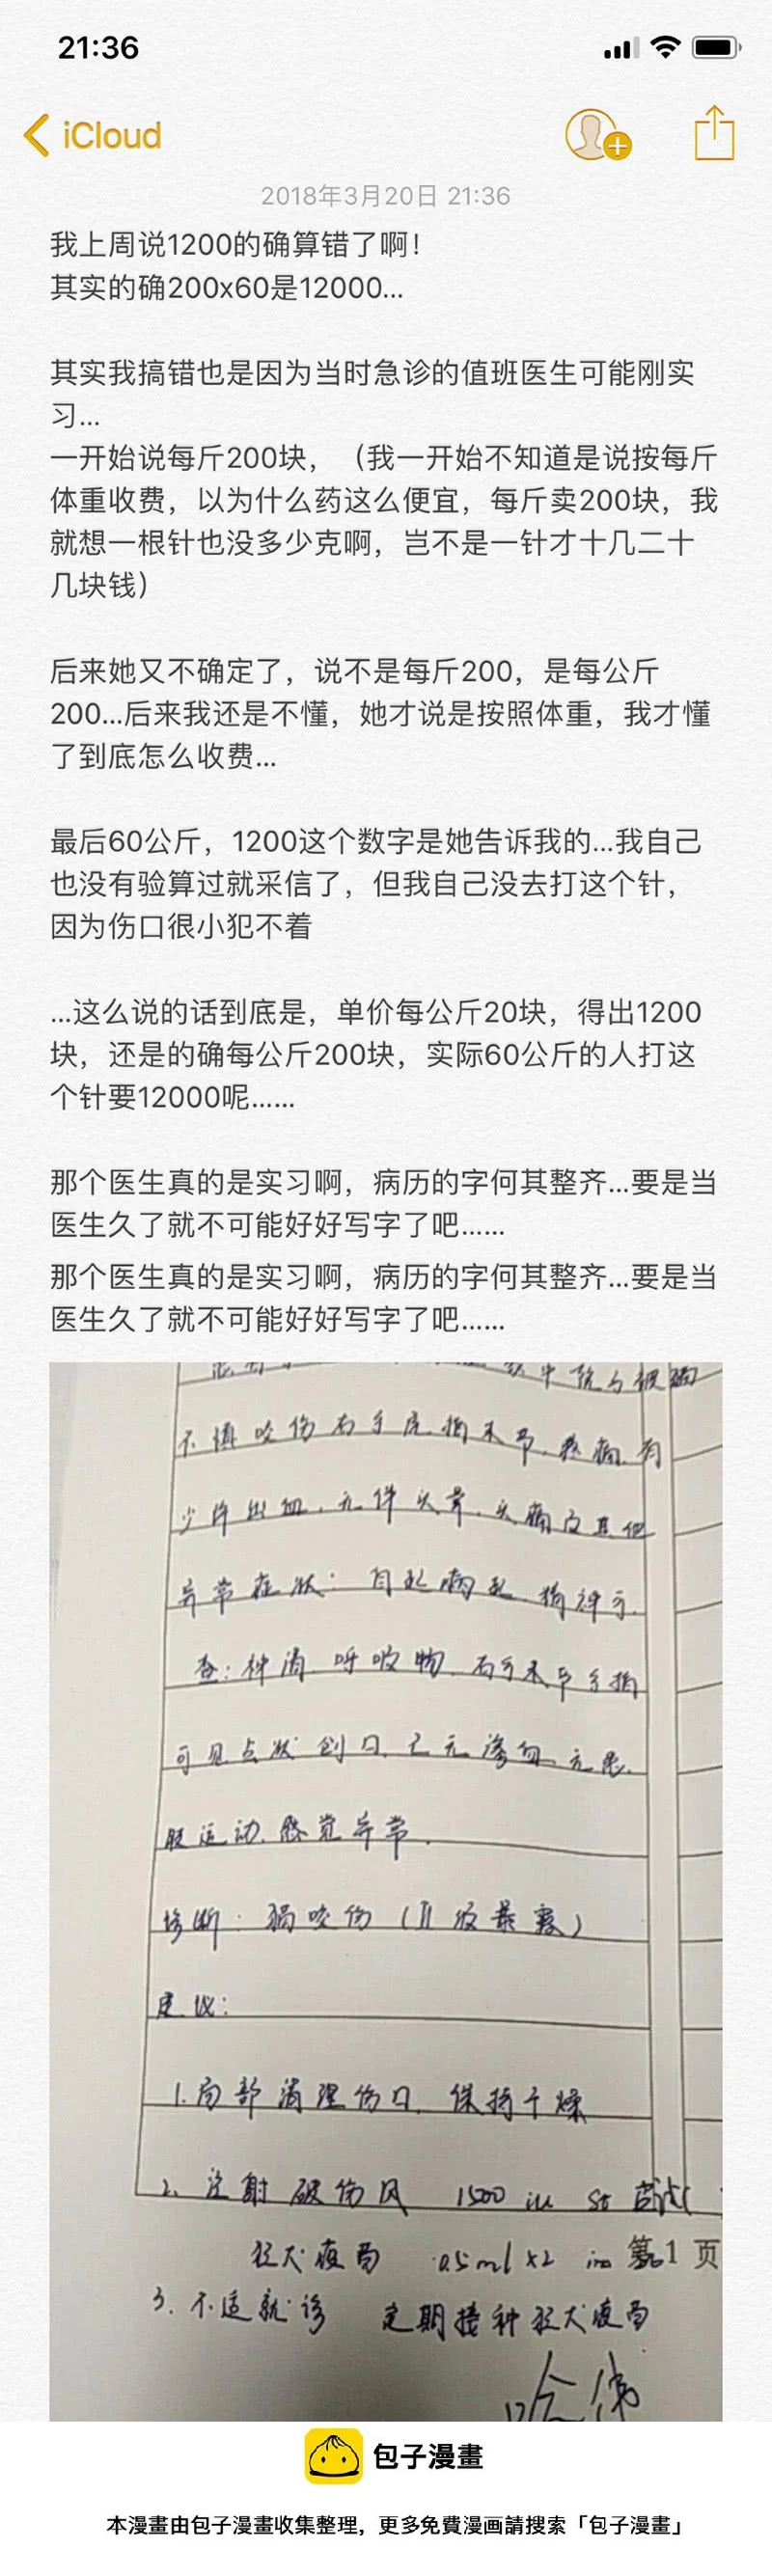 21:36
iCloud
2018年3月20日 21:36
我上周说1200的确算错了啊！
其实的确200x60是12000...
其实我搞错也是因为当时急诊的值班医生可能刚实
习...
一开始说每斤200块，（我一开始不知道是说按每斤
体重收费，以为什么药这么便宜，每斤卖200块，我
就想一根针也没多少克啊，岂不是一针才十几二十
几块钱）
后来她又不确定了，说不是每斤200，是每公斤
200...后来我还是不懂，她才说是按照体重，我才懂
了到底怎么收费...
最后60公斤，1200这个数字是她告诉我的...我自己
也没有验算过就采信了，但我自己没去打这个针，
因为伤口很小犯不着
...这么说的话到底是，单价每公斤20块，得出1200
块，还是的确每公斤200块，实际60公斤的人打这
个针要12000呢......
那个医生真的是实习啊，病历的字何其整齐...要是当
医生久了就不可能好好写字了吧......
那个医生真的是实习啊，病历的字何其整齐...要是当
医生久了就不可能好好写字了吧......
不慎咬伤右手
少许出血.无伴头晕.头痛及其他
异常症状.
查:神清
可见点状创口.已无渗血.无患.
肢运动.感觉异常.
诊断: 咬伤(II级暴露)
建议:
1.局部清理伤口.保持干燥
2.注射破伤风 1500 iu
狂犬疫苗 0.5ml x2 im 第1页
3.不适就诊 定期接种狂犬疫苗
包子漫畫
本漫畫由包子漫畫收集整理，更多免費漫画請搜索「包子漫畫」